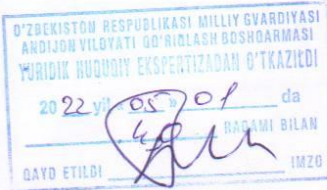 O'ZBEKISTON RESPUBLIKASI MILLIY GVARDIYASI
ANDIJON VILOYATI QO'RIQLASH BOSHQARMASI
YURIDIK HUQUQIY EKSPERTIZADAN O'TKAZILDI
2022 yil « 05 » 01 da
RAQAMI BILAN
QAYD ETILDI IMZO